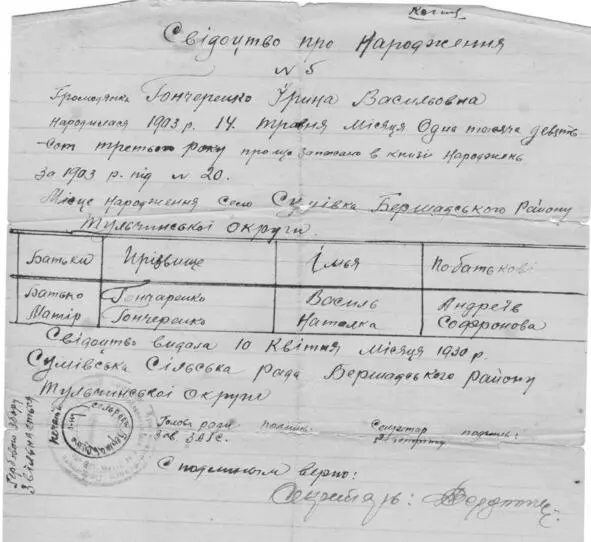 Копия
Свідоцтво про Народження
N 5
Громодянка Гончеренко Ірина Васильовна
народилася 1903 р. 14. травня місяця Одна тисяча девять
-сот третього року про що записано в книзі народжень
за 1903 р. під N 20.
Місце народження село Сумівка Бершадського Району
Тульчинської округи.
Батьки Прізвище Імья По батькові
Батько Гончаренко Василь Андреїв
Матір Гончеренко Наталка Софронова
Свідоцтво видала 10 Квітня місяця 1930 р.
Сумівська Сільська Рада Бершадського Району
Тульчинської Округи
Голова ради подпись: Секретар подпись:
Зав ЗАГС.
Гербового збору
Звільняється
печать
С подлинным верно:
Секретарь: